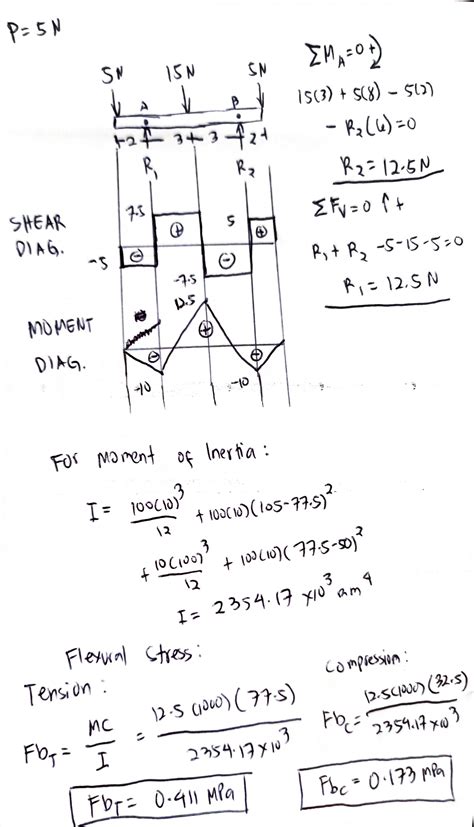 P = 5N
5N 15N 5N
A B
2 3 3 2
R₁ R₂
ΣM_A = 0 +
15(3) + 5(8) - 5(2)
- R₂(6) = 0
R₂ = 12.5N
ΣF_V = 0 ↑+
R₁ + R₂ - 5 - 15 - 5 = 0
R₁ = 12.5N
SHEAR
DIAG.
7.5 5
⊕ ⊕
-5 ⊖ ⊖
-7.5
MOMENT
DIAG.
12.5
⊖ ⊕ ⊕
-10 -10
For Moment of Inertia:
I = 100(10)³/12 + 100(10)(105-77.5)²
+ 10(100)³/12 + 100(10)(77.5-50)²
I = 2354.17 x10³ mm⁴
Flexural Stress:
Tension:
Fb_T = MC/I = 12.5(1000)(77.5)/2354.17x10³
Fb_T = 0.411 MPa
Compression:
Fb_C = 12.5(1000)(32.5)/2354.17x10³
Fb_C = 0.173 MPa